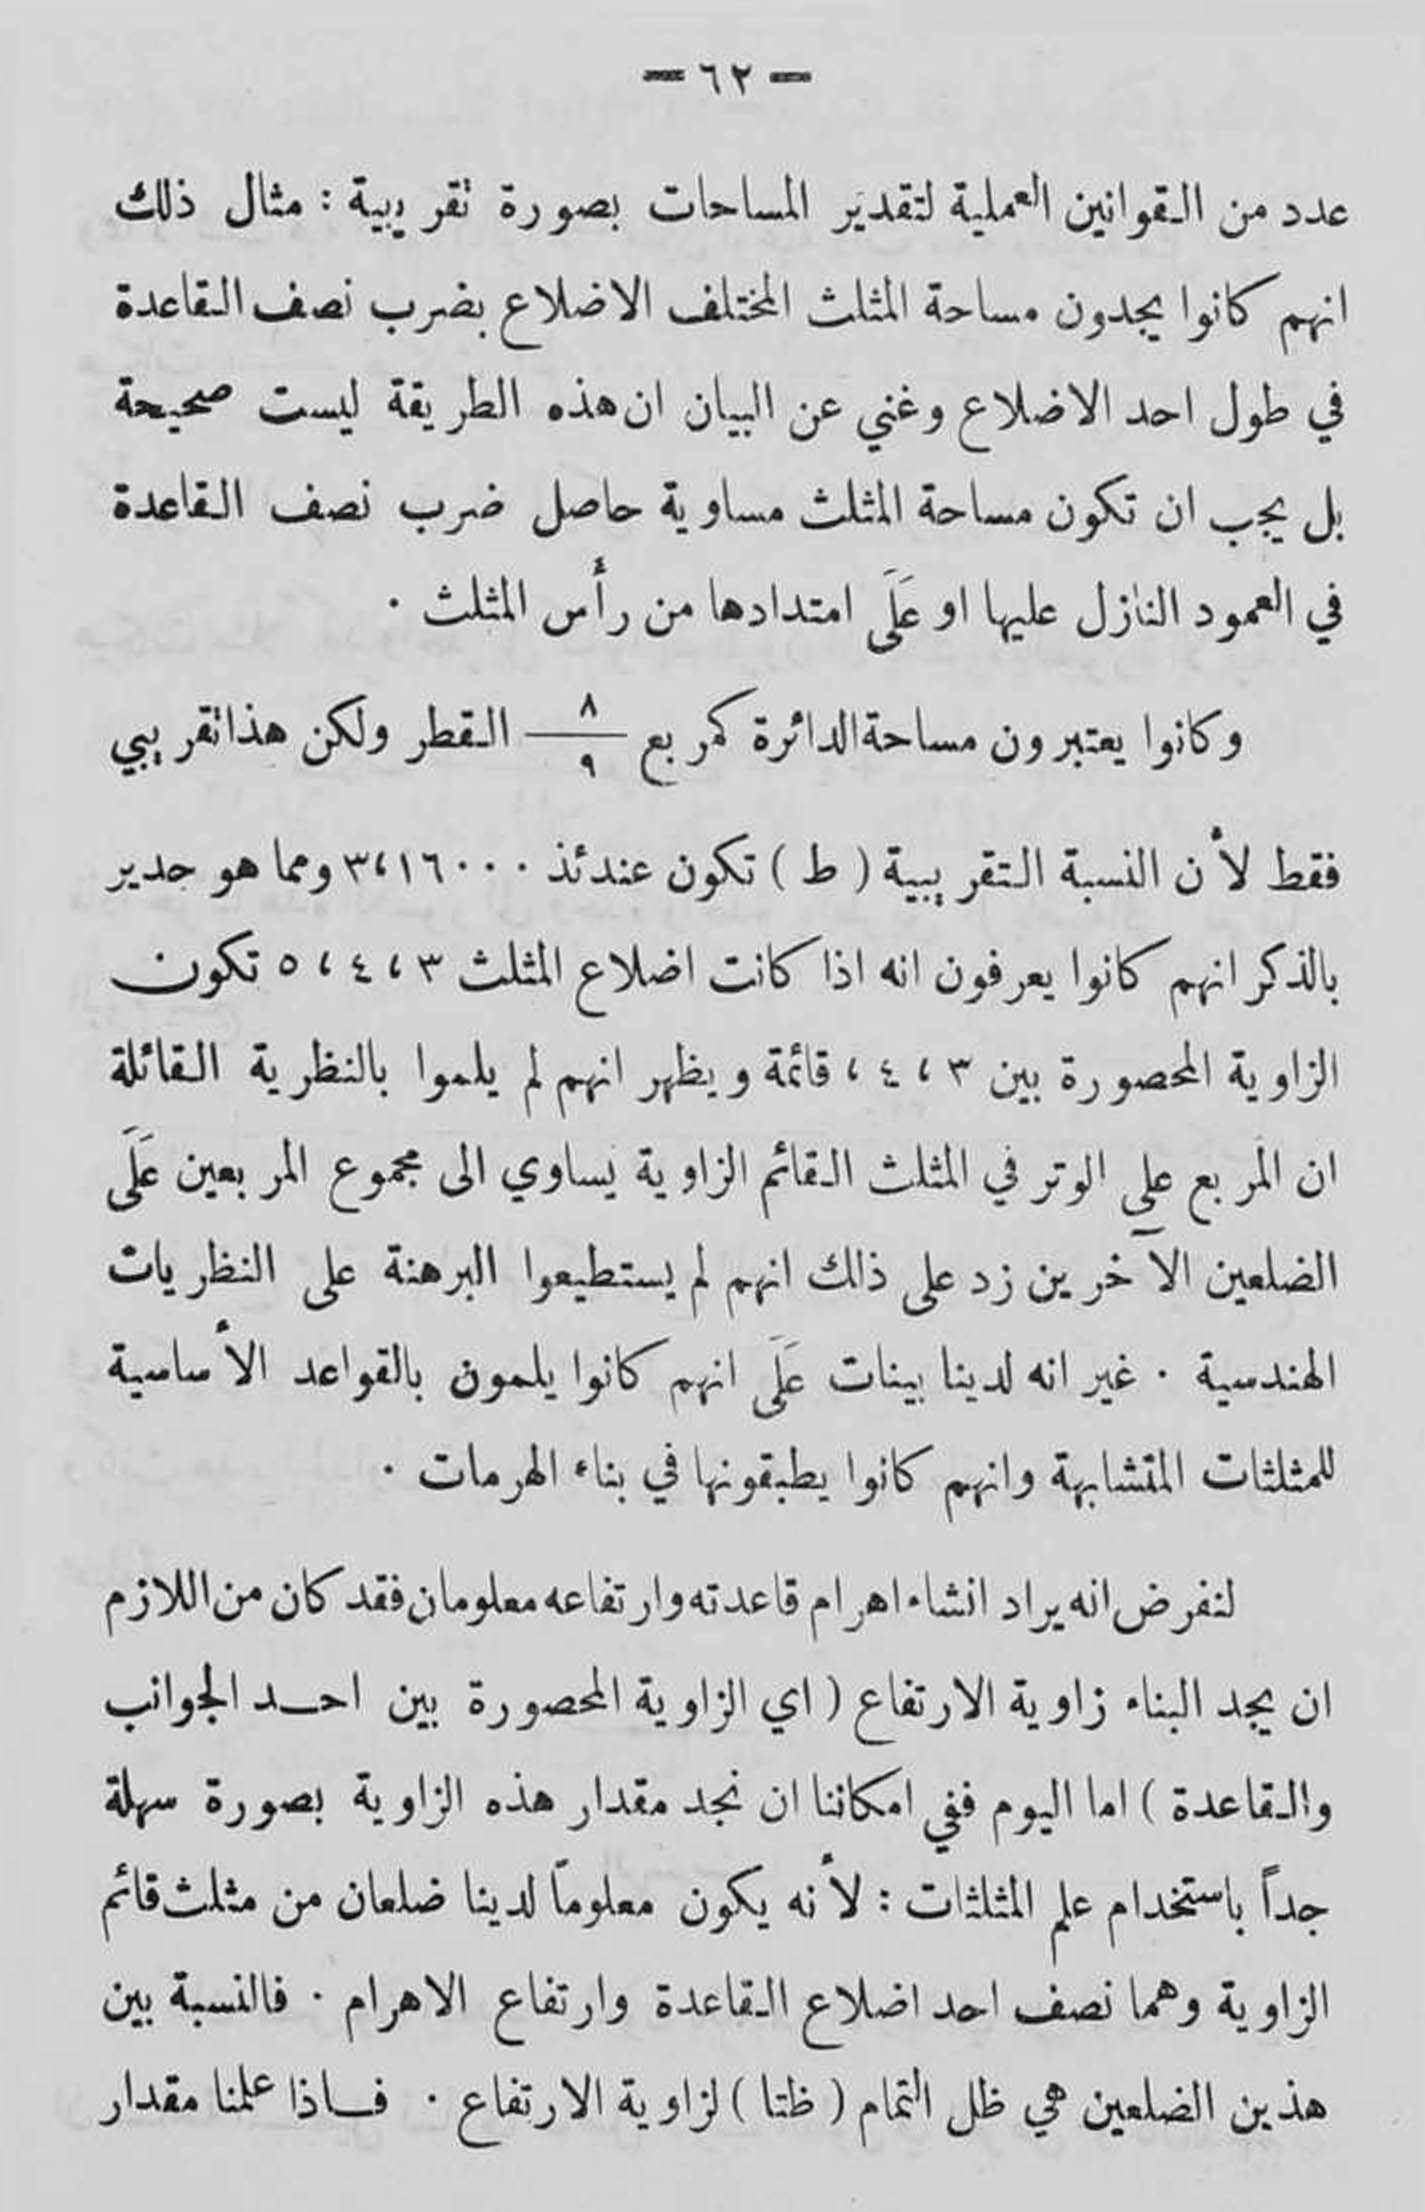 — ٦٢ —
عدد من القوانين العملية لتقدير المساحات بصورة تقريبية : مثال ذلك
انهم كانوا يجدون مساحة المثلث المختلف الاضلاع بضرب نصف القاعدة
في طول احد الاضلاع وغني عن البيان ان هذه الطريقة ليست صحيحة
بل يجب ان تكون مساحة المثلث مساوية حاصل ضرب نصف القاعدة
في العمود النازل عليها او عَلَى امتدادها من رأس المثلث .
وكانوا يعتبرون مساحة الدائرة كمربع ٨/٩ القطر ولكن هذا تقريبي
فقط لأن النسبة التقريبية ( ط ) تكون عندئذ ٣،١٦٠٠٠ ومما هو جدير
بالذكر انهم كانوا يعرفون انه اذا كانت اضلاع المثلث ٣ ، ٤ ، ٥ تكون
الزاوية المحصورة بين ٣ ، ٤ ، قائمة ويظهر انهم لم يلموا بالنظرية القائلة
ان المربع على الوتر في المثلث القائم الزاوية يساوي الى مجموع المربعين عَلَى
الضلعين الآخرين زد على ذالك انهم لم يستطيعوا البرهنة على النظريات
الهندسية . غير انه لدينا بينات عَلَى انهم كانوا يلمون بالقواعد الأساسية
للمثلثات المتشابهة وانهم كانوا يطبقونها في بناء الهرمات .
لنفرض انه يراد انشاء اهرام قاعدته وارتفاعه معلومان فقد كان من اللازم
ان يجد البناء زاوية الارتفاع ( اي الزاوية المحصورة بين احد الجوانب
والقاعدة ) اما اليوم ففي امكاننا ان نجد مقدار هذه الزاوية بصورة سهلة
جداً باستخدام علم المثلثات : لأنه يكون معلوماً لدينا ضلعان من مثلث قائم
الزاوية وهما نصف احد اضلاع القاعدة وارتفاع الاهرام . فالنسبة بين
هذين الضلعين هي ظل التمام ( ظتا ) لزاوية الارتفاع . فاذا علمنا مقدار